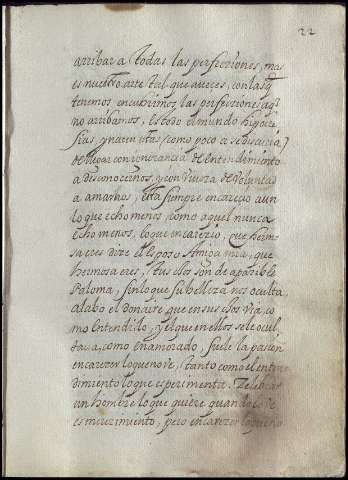 22
arribar a todas las perfecciones, mas
es nuestro arte tal que aveces, con las q̃
tenemos encubrimos las perfeciones aq̃
no arribamos, Es todo el mundo hipocre
sias, y nacen estas, como poco a
de mirar con ignorancia de Entendimiento
a Desconocernos, y con de Voluntad
a amarnos, Esta siempre encareçe aun
lo que echo menos, como aquel nunca
echo menos, lo que encareçio, que hermo
sa eres dize el Esposo Amiga mia, que
hermosa eres, tus ojos son de apasible
Paloma, sin lo que su belleza nos oculta,
alabo el donaire que en sus ojos via, co
mo Entendido, y el que en ellos se le ocul
taua, como enamorado, suele la pasion
encarezer lo que no ve, tanto como el enten
dimiento lo que esperimenta. Zelebrar
un hombre lo que quiere quando lo ve
es merezimiento, pero encarezer lo que no